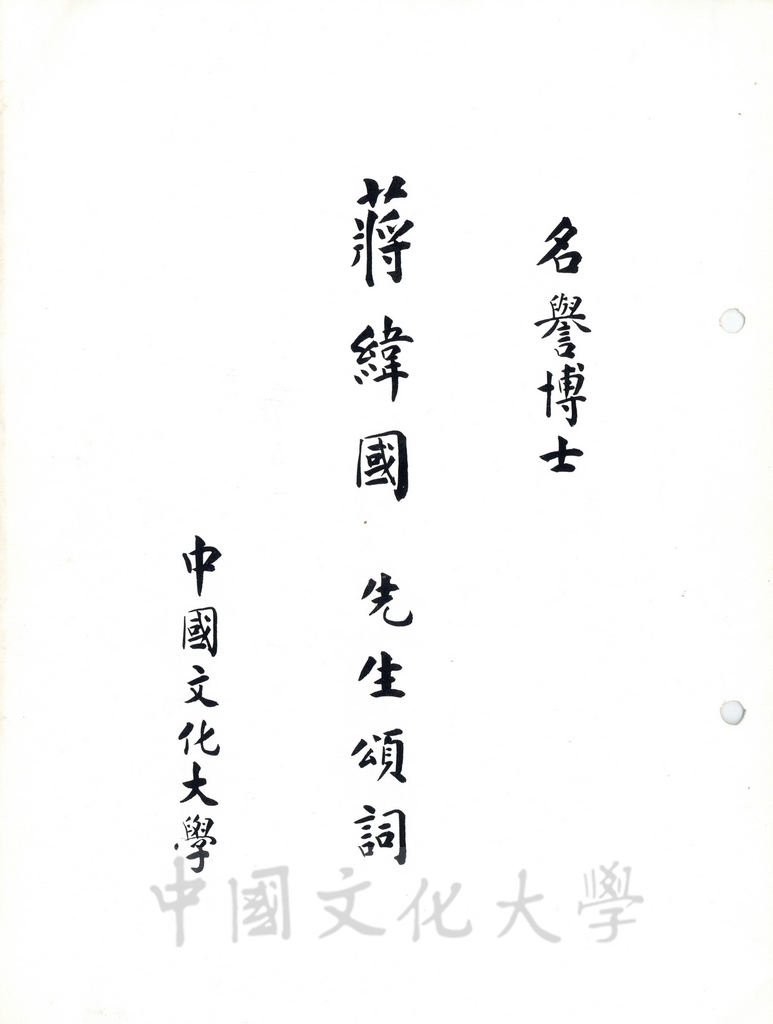 名譽博士
蔣緯國先生頌詞
中國文化大學
中國文化大學